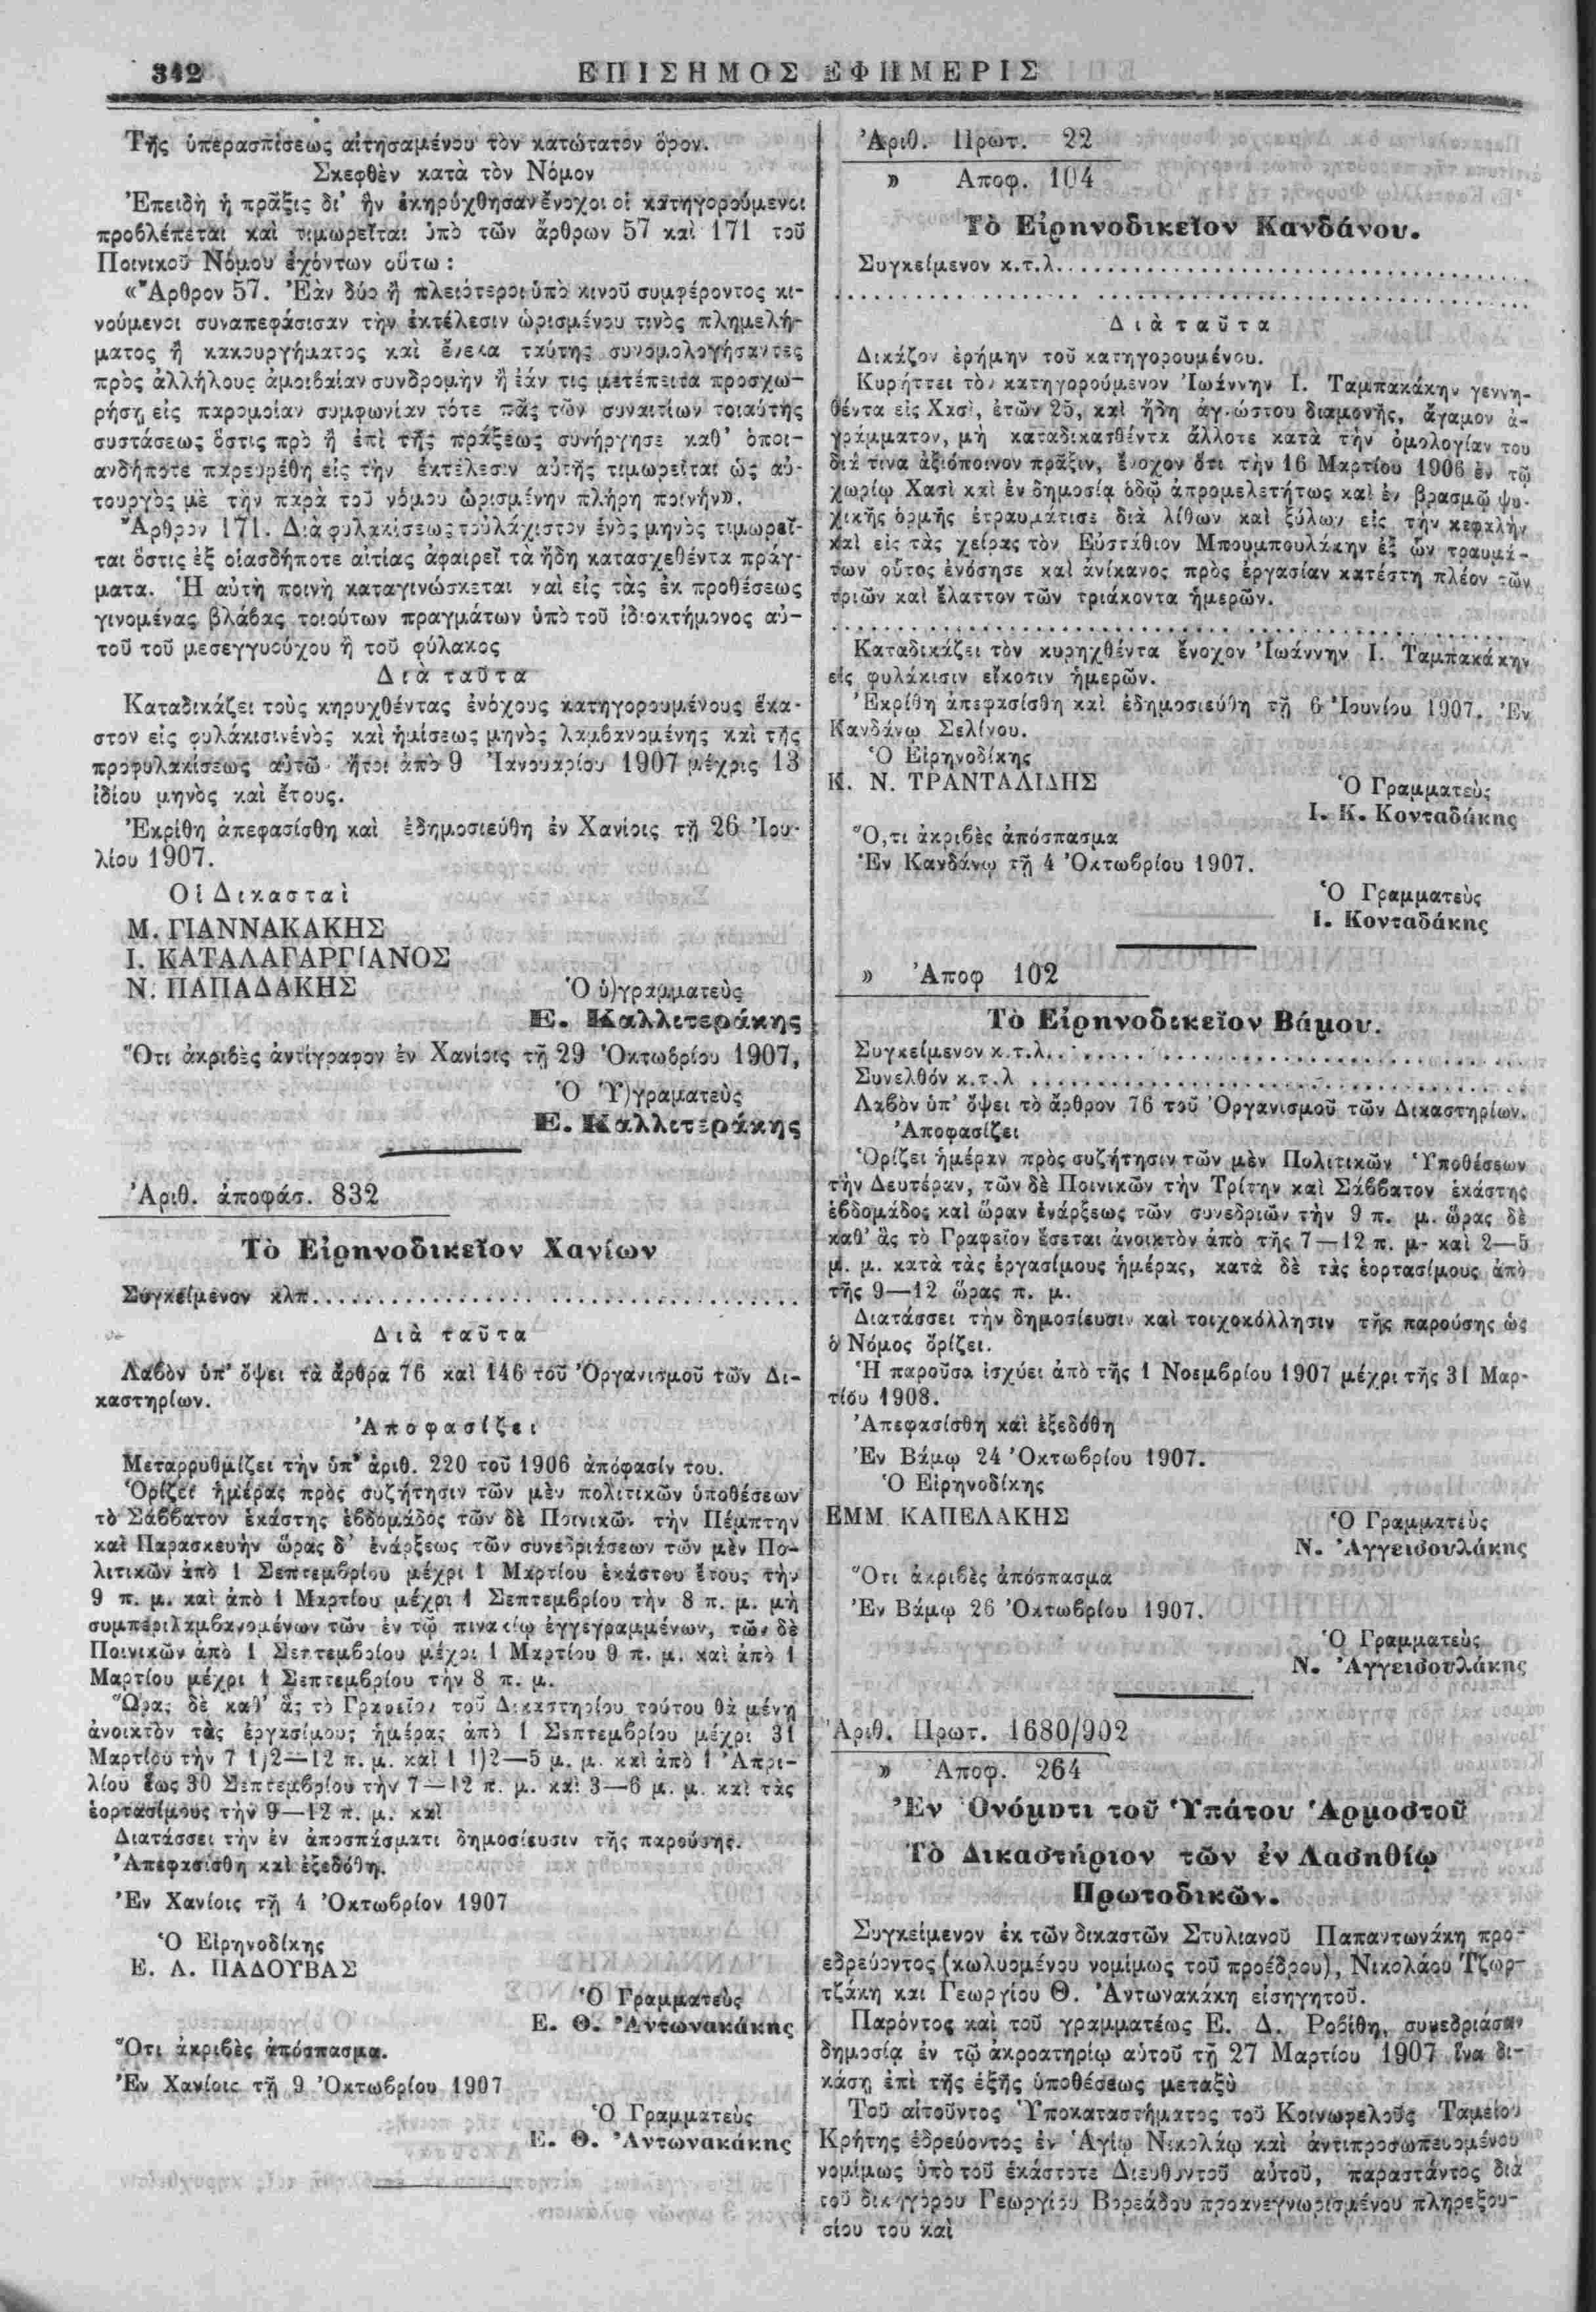 342
ΕΠΙΣΗΜΟΣ ΕΦΗΜΕΡΙΣ
Τῆς ὑπερασπίσεως αἰτησαμένου τὸν κατώτατον ὅρον.
Σκεφθὲν κατὰ τὸν Νόμον
Ἐπειδὴ ἡ πρᾶξις δι' ἣν ἐκηρύχθησαν ἔνοχοι οἱ κατηγορούμενοι
προβλέπεται καὶ τιμωρεῖται ὑπὸ τῶν ἄρθρων 57 καὶ 171 τοῦ
Ποινικοῦ Νόμου ἐχόντων οὕτω :
«Ἄρθρον 57. Ἐὰν δύο ἢ πλειότεροι ὑπὸ κινοῦ συμφέροντος κι-
νούμενοι συναπεφάσισαν τὴν ἐκτέλεσιν ὡρισμένου τινὸς πλημελή-
ματος ἢ κακουργήματος καὶ ἕνεκα ταύτης συνομολογήσαντες
πρὸς ἀλλήλους ἀμοιβαίαν συνδρομὴν ἢ ἐάν τις μετέπειτα προσχω-
ρήσῃ εἰς παρομοίαν συμφωνίαν τότε πᾶς τῶν συναιτίων τοιαύτης
συστάσεως ὅστις πρὸ ἢ ἐπὶ τῆς πράξεως συνήργησε καθ' ὁποι-
ανδήποτε παρευρέθη εἰς τὴν ἐκτέλεσιν αὐτῆς τιμωρεῖται ὡς αὐ-
τουργὸς μὲ τὴν παρὰ τοῦ νόμου ὡρισμένην πλήρη ποινήν».
Ἄρθρον 171. Διὰ φυλακίσεως τοὐλάχιστον ἑνὸς μηνὸς τιμωρεῖ-
ται ὅστις ἐξ οἱασδήποτε αἰτίας ἀφαιρεῖ τὰ ἤδη κατασχεθέντα πράγ-
ματα. Ἡ αὐτὴ ποινὴ καταγινώσκεται καὶ εἰς τὰς ἐκ προθέσεως
γινομένας βλάβας τοιούτων πραγμάτων ὑπὸ τοῦ ἰδιοκτήμονος αὐ-
τοῦ τοῦ μεσεγγυούχου ἢ τοῦ φύλακος
Διὰ ταῦτα
Καταδικάζει τοὺς κηρυχθέντας ἐνόχους κατηγορουμένους ἕκα-
στον εἰς φυλάκισιν ἑνὸς καὶ ἡμίσεως μηνὸς λαμβανομένης καὶ τῆς
προφυλακίσεως αὐτῶ ἤτοι ἀπὸ 9 Ἰανουαρίου 1907 μέχρις 13
ἰδίου μηνὸς καὶ ἔτους.
Ἐκρίθη ἀπεφασίσθη καὶ ἐδημοσιεύθη ἐν Χανίοις τῇ 26 Ἰου-
λίου 1907.
Οἱ Δικασταὶ
Μ. ΓΙΑΝΝΑΚΑΚΗΣ
Ι. ΚΑΤΑΛΑΓΑΡΓΙΑΝΟΣ
Ν. ΠΑΠΑΔΑΚΗΣ
Ὁ ὑ)γραμματεὺς
Ε. Καλλιτεράκης
Ὅτι ἀκριβὲς ἀντίγραφον ἐν Χανίοις τῇ 29 Ὀκτωβρίου 1907,
Ὁ Ὑ)γραματεὺς
Ε. Καλλιτεράκης
Ἀριθ. ἀποφάσ. 832
Τὸ Εἰρηνοδικεῖον Χανίων
Συγκείμενον κλπ.......................
Διὰ ταῦτα
Λαβὸν ὑπ' ὄψει τὰ ἄρθρα 76 καὶ 146 τοῦ Ὀργανισμοῦ τῶν Δι-
καστηρίων.
Ἀποφασίζει
Μεταρρυθμίζει τὴν ὑπ' ἀριθ. 220 τοῦ 1906 ἀπόφασίν του.
Ὁρίζει ἡμέρας πρὸς συζήτησιν τῶν μὲν πολιτικῶν ὑποθέσεων
τὸ Σάββατον ἑκάστης ἑβδομάδος τῶν δὲ Ποινικῶν τὴν Πέμπτην
καὶ Παρασκευὴν ὥρας δ' ἐνάρξεως τῶν συνεδριάσεων τῶν μὲν Πο-
λιτικῶν ἀπὸ 1 Σεπτεμβρίου μέχρι 1 Μαρτίου ἑκάστου ἔτους τὴν
9 π. μ. καὶ ἀπὸ 1 Μαρτίου μέχρι 1 Σεπτεμβρίου τὴν 8 π. μ. μὴ
συμπεριλαμβανομένων τῶν ἐν τῷ πινακίῳ ἐγγεγραμμένων, τῶν δὲ
Ποινικῶν ἀπὸ 1 Σεπτεμβρίου μέχρι 1 Μαρτίου 9 π. μ. καὶ ἀπὸ 1
Μαρτίου μέχρι 1 Σεπτεμβρίου τὴν 8 π. μ.
Ὥρας δὲ καθ' ἃς τὸ Γραφεῖον τοῦ Δικαστηρίου τούτου θὰ μένῃ
ἀνοικτὸν τὰς ἐργασίμους ἡμέρας ἀπὸ 1 Σεπτεμβρίου μέχρι 31
Μαρτίου τὴν 7 1)2—12 π. μ. καὶ 1 1)2—5 μ. μ. καὶ ἀπὸ 1 Ἀπρι-
λίου ἕως 30 Σεπτεμβρίου τὴν 7—12 π. μ. καὶ 3—6 μ. μ. καὶ τὰς
ἑορτασίμους τὴν 9—12 π. μ. καὶ
Διατάσσει τὴν ἐν ἀποσπάσματι δημοσίευσιν τῆς παρούσης.
Ἀπεφασίσθη καὶ ἐξεδόθη.
Ἐν Χανίοις τῇ 4 Ὀκτωβρίον 1907
Ὁ Εἰρηνοδίκης
Ε. Λ. ΠΑΔΟΥΒΑΣ
Ὁ Γραμματεὺς
Ε. Θ. Ἀντωνακάκης
Ὅτι ἀκριβὲς ἀπόσπασμα.
Ἐν Χανίοις τῇ 9 Ὀκτωβρίου 1907
Ὁ Γραμματεὺς
Ε. Θ. Ἀντωνακάκης
Ἀριθ. Πρωτ. 22
» Αποφ. 104
Τὸ Εἰρηνοδικεῖον Κανδάνου.
Συγκείμενον κ.τ.λ.......................
.......................
Διὰ ταῦτα
Δικάζον ἐρήμην τοῦ κατηγορουμένου.
Κυρήττει τὸν κατηγορούμενον Ἰωάννην Ι. Ταμπακάκην γεννη-
θέντα εἰς Χασὶ, ἐτῶν 25, καὶ ἤδη ἀγνώστου διαμονῆς, ἄγαμον ἀ-
γράμματον, μὴ καταδικασθέντα ἄλλοτε κατὰ τὴν ὁμολογίαν του
διά τινα ἀξιόποινον πρᾶξιν, ἔνοχον ὅτι τὴν 16 Μαρτίου 1906 ἐν τῷ
χωρίῳ Χασὶ καὶ ἐν δημοσίᾳ ὁδῷ ἀπρομελετήτως καὶ ἐν βρασμῷ ψυ-
χικῆς ὁρμῆς ἐτραυμάτισε διὰ λίθων καὶ ξύλων εἰς τὴν κεφαλὴν
καὶ εἰς τὰς χεῖρας τὸν Εὐστάθιον Μπουμπουλάκην ἐξ ὧν τραυμά-
των οὗτος ἐνόσησε καὶ ἀνίκανος πρὸς ἐργασίαν κατέστη πλέον τῶν
τριῶν καὶ ἔλαττον τῶν τριάκοντα ἡμερῶν.
.......................
Καταδικάζει τὸν κυρηχθέντα ἔνοχον Ἰωάννην Ι. Ταμπακάκην
εἰς φυλάκισιν εἴκοσιν ἡμερῶν.
Ἐκρίθη ἀπεφασίσθη καὶ ἐδημοσιεύθη τῇ 6 Ἰουνίου 1907. Ἐν
Κανδάνῳ Σελίνου.
Ὁ Εἰρηνοδίκης
Κ. Ν. ΤΡΑΝΤΑΛΙΔΗΣ
Ὁ Γραμματεὺς
Ι. Κ. Κονταδάκης
Ὅ,τι ἀκριβὲς ἀπόσπασμα
Ἐν Κανδάνῳ τῇ 4 Ὀκτωβρίου 1907.
Ὁ Γραμματεὺς
Ι. Κονταδάκης
» Ἀποφ 102
Τὸ Εἰρηνοδικεῖον Βάμου.
Συγκείμενον κ.τ.λ.......................
Συνελθόν κ.τ.λ .......................
Λαβὸν ὑπ' ὄψει τὸ ἄρθρον 76 τοῦ Ὀργανισμοῦ τῶν Δικαστηρίων.
Ἀποφασίζει
Ὁρίζει ἡμέραν πρὸς συζήτησιν τῶν μὲν Πολιτικῶν Ὑποθέσεων
τὴν Δευτέραν, τῶν δὲ Ποινικῶν τὴν Τρίτην καὶ Σάββατον ἑκάστης
ἑβδομάδος καὶ ὥραν ἐνάρξεως τῶν συνεδριῶν τὴν 9 π. μ. ὥρας δὲ
καθ' ἃς τὸ Γραφεῖον ἔσεται ἀνοικτὸν ἀπὸ τῆς 7—12 π. μ- καὶ 2—5
μ. μ. κατὰ τὰς ἐργασίμους ἡμέρας, κατὰ δὲ τὰς ἑορτασίμους ἀπὸ
τῆς 9—12 ὥρας π. μ.
Διατάσσει τὴν δημοσίευσιν καὶ τοιχοκόλλησιν τῆς παρούσης ὡς
ὁ Νόμος ὁρίζει.
Ἡ παροῦσα ἰσχύει ἀπὸ τῆς 1 Νοεμβρίου 1907 μέχρι τῆς 31 Μαρ-
τίου 1908.
Ἀπεφασίσθη καὶ ἐξεδόθη
Ἐν Βάμῳ 24 Ὀκτωβρίου 1907.
Ὁ Εἰρηνοδίκης
ΕΜΜ ΚΑΠΕΛΑΚΗΣ
Ὁ Γραμματεὺς
Ν. Ἀγγειδουλάκης
Ὅτι ἀκριβὲς ἀπόσπασμα
Ἐν Βάμῳ 26 Ὀκτωβρίου 1907.
Ὁ Γραμματεὺς
Ν. Ἀγγειδουλάκης
Ἀριθ. Πρωτ. 1680/902
» Ἀποφ. 264
Ἐν Ὀνόματι τοῦ Ὑπάτου Ἁρμοστοῦ
Τὸ Δικαστήριον τῶν ἐν Λασηθίῳ
Πρωτοδικῶν.
Συγκείμενον ἐκ τῶν δικαστῶν Στυλιανοῦ Παπαντωνάκη προ-
εδρεύοντος (κωλυομένου νομίμως τοῦ προέδρου), Νικολάου Τζωρ-
τζάκη και Γεωργίου Θ. Ἀντωνακάκη εἰσηγητοῦ.
Παρόντος καὶ τοῦ γραμματέως Ε. Δ. Ροβίθη, συνεδριάσαν
δημοσίᾳ ἐν τῷ ἀκροατηρίῳ αὐτοῦ τῇ 27 Μαρτίου 1907 ἵνα δι-
κάσῃ ἐπὶ τῆς ἑξῆς ὑποθέσεως μεταξὺ
Τοῦ αἰτοῦντος Ὑποκαταστήματος τοῦ Κοινωφελοῦς Ταμείου
Κρήτης ἑδρεύοντος ἐν Ἁγίῳ Νικολάῳ καὶ ἀντιπροσωπευομένου
νομίμως ὑπὸ τοῦ ἑκάστοτε Διευθυντοῦ αὐτοῦ, παραστάντος διὰ
τοῦ δικηγόρου Γεωργίου Βορεάδου προανεγνωρισμένου πληρεξου-
σίου του καὶ